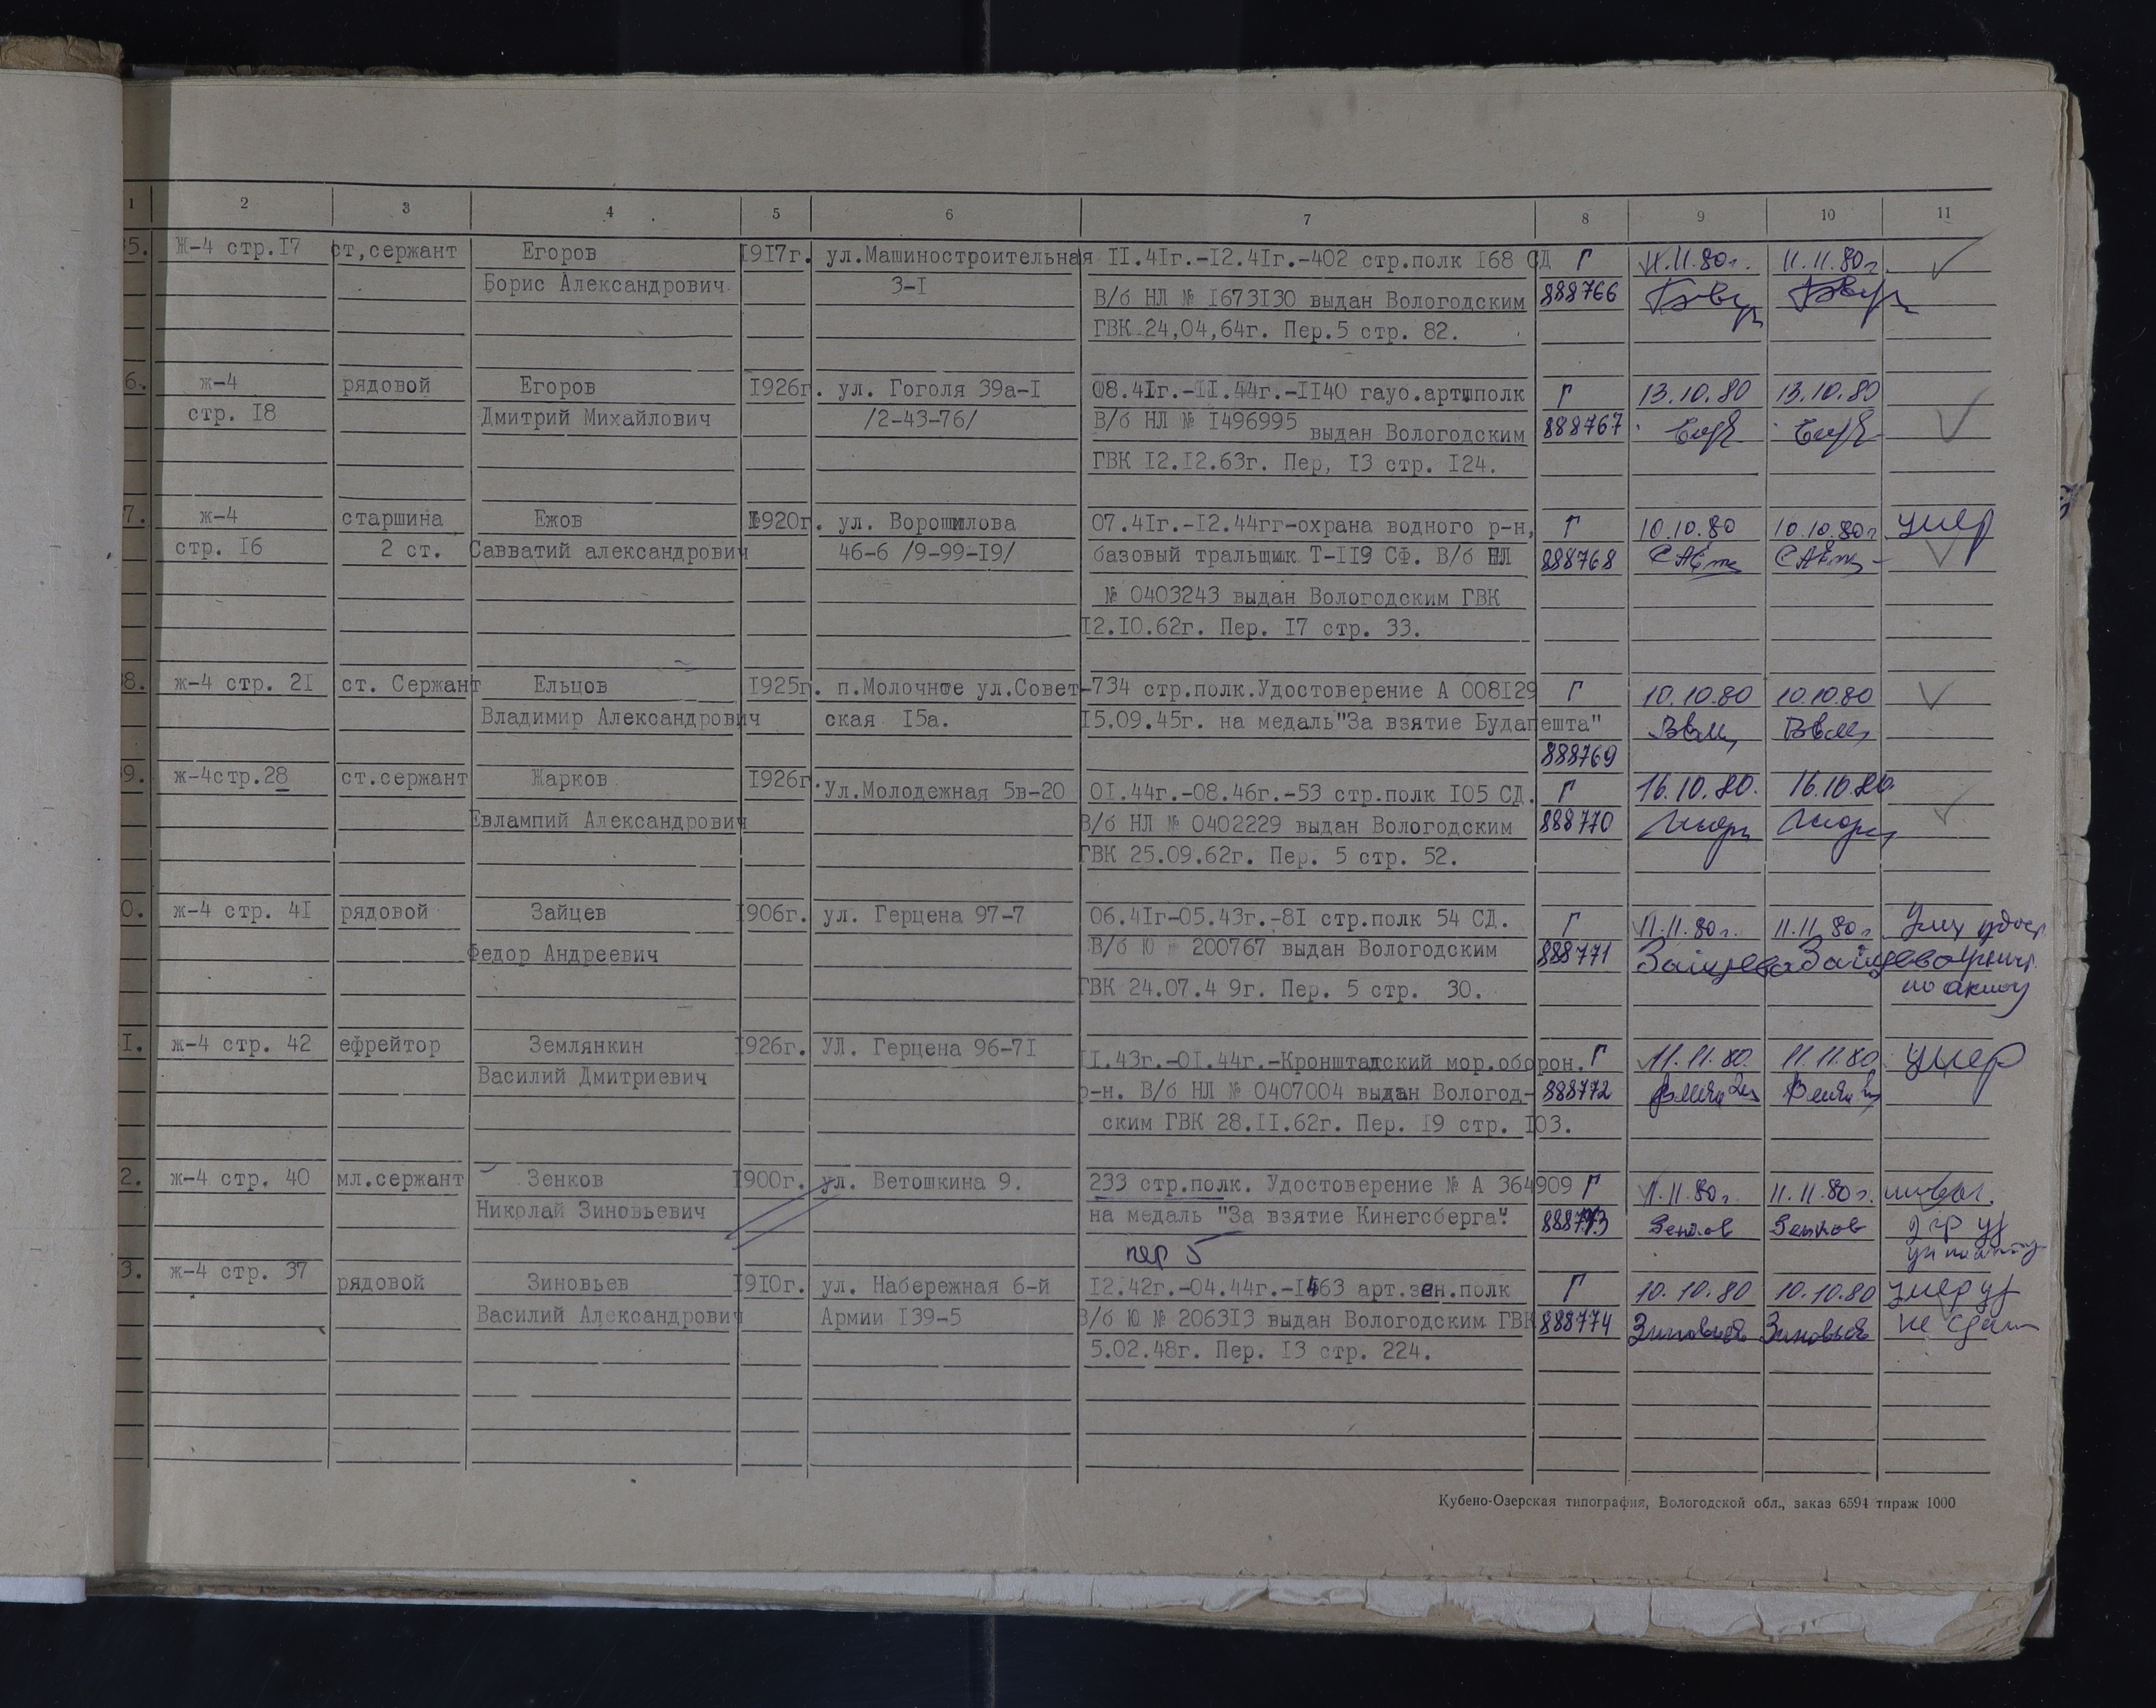 1 2 3 4 5 6 7 8 9 10 11
5. Ж-4 стр.I7 ст,сержант Егоров I9I7г. ул.Машиностроительная II.4Iг.-I2.4Iг.-402 стр.полк I68 СД Г 11.11.80г. 11.11.80г.
Борис Александрович 3-I В/б НЛ № I673I30 выдан Вологодским 888766
ГВК 24,04,64г. Пер.5 стр. 82.
6. ж-4 рядовой Егоров I926г. ул. Гоголя 39а-I 08.4Iг.-II.44г.-II40 гауб.артшполк Г 13.10.80 13.10.80
стр. I8 Дмитрий Михайлович /2-43-76/ В/б НЛ № I496995 выдан Вологодским 888767
ГВК I2.I2.63г. Пер, I3 стр. I24.
7. ж-4 старшина Ежов I920г. ул. Ворошилова 07.4Iг.-I2.44гг-охрана водного р-н, Г 10.10.80 10.10.80г умер
стр. I6 2 ст. Савватий александрович 46-6 /9-99-I9/ базовый тральщик Т-II9 СФ. В/б НЛ 888768
№ 0403243 выдан Вологодским ГВК
I2.I0.62г. Пер. I7 стр. 33.
8. ж-4 стр. 2I ст. Сержант Ельцов I925г. п.Молочное ул.Совет- -734 стр.полк.Удостоверение А 008I29 Г 10.10.80 10.10.80
Владимир Александрович ская I5а. I5.09.45г. на медаль"За взятие Будапешта"
888769
9. ж-4стр.28 ст.сержант Жарков I926г. Ул.Молодежная 5в-20 0I.44г.-08.46г.-53 стр.полк I05 СД. Г 16.10.80. 16.10.80.
Евлампий Александрович В/б НЛ № 0402229 выдан Вологодским 888770
ГВК 25.09.62г. Пер. 5 стр. 52.
0. ж-4 стр. 4I рядовой Зайцев I906г. ул. Герцена 97-7 06.4Iг-05.43г.-8I стр.полк 54 СД. Г 11.11.80г. 11.11.80г
Федор Андреевич В/б Ю № 200767 выдан Вологодским 888771 Зайцева Зайцева
ГВК 24.07.4 9г. Пер. 5 стр. 30. по акту
I. ж-4 стр. 42 ефрейтор Землянкин I926г. УЛ. Герцена 96-7I II.43г.-0I.44г.-Кронштадский мор.оборон. Г 11.11.80. 11.11.80. умер
Василий Дмитриевич р-н. В/б НЛ № 0407004 выдан Вологод- 888772
ским ГВК 28.II.62г. Пер. I9 стр. I03.
2. ж-4 стр. 40 мл.сержант Зенков I900г. ул. Ветошкина 9. 233 стр.полк. Удостоверение № А 364909 Г 11.11.80г. 11.11.80г.
Николай Зиновьевич на медаль "За взятие Кинегсберга". 888773 Зенков Зенков
пер 5
3. ж-4 стр. 37 рядовой Зиновьев I9I0г. ул. Набережная 6-й I2.42г.-04.44г.-I463 арт.зен.полк Г 10.10.80 10.10.80 умер уд
Василий Александрович Армии I39-5 В/б Ю № 2063I3 выдан Вологодским ГВК 888774 Зиновьев Зиновьев не сдан
5.02.48г. Пер. I3 стр. 224.
Кубено-Озерская типография, Вологодской обл., заказ 6594 тираж 1000